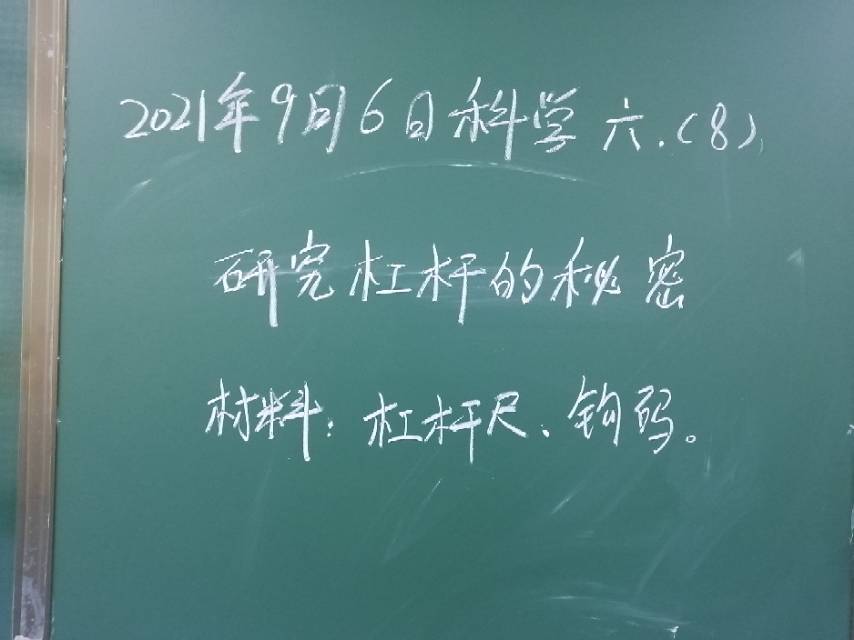 2021年9月6日科学六.(8)
研究杠杆的秘密
材料：杠杆尺、钩码。